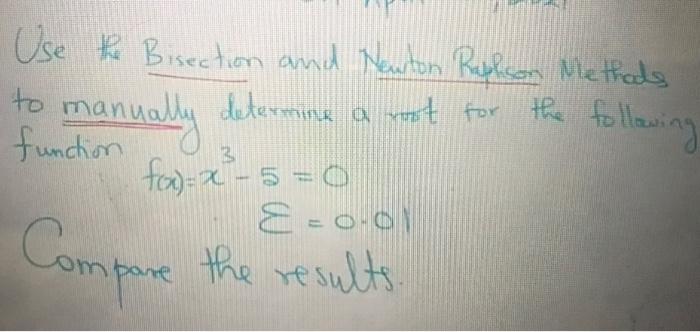 Use the Bisection and Newton Raphson Methods
to manually determine a root for the following
function
f(x)=x³-5=0
Ɛ=0.01
Compare the results.